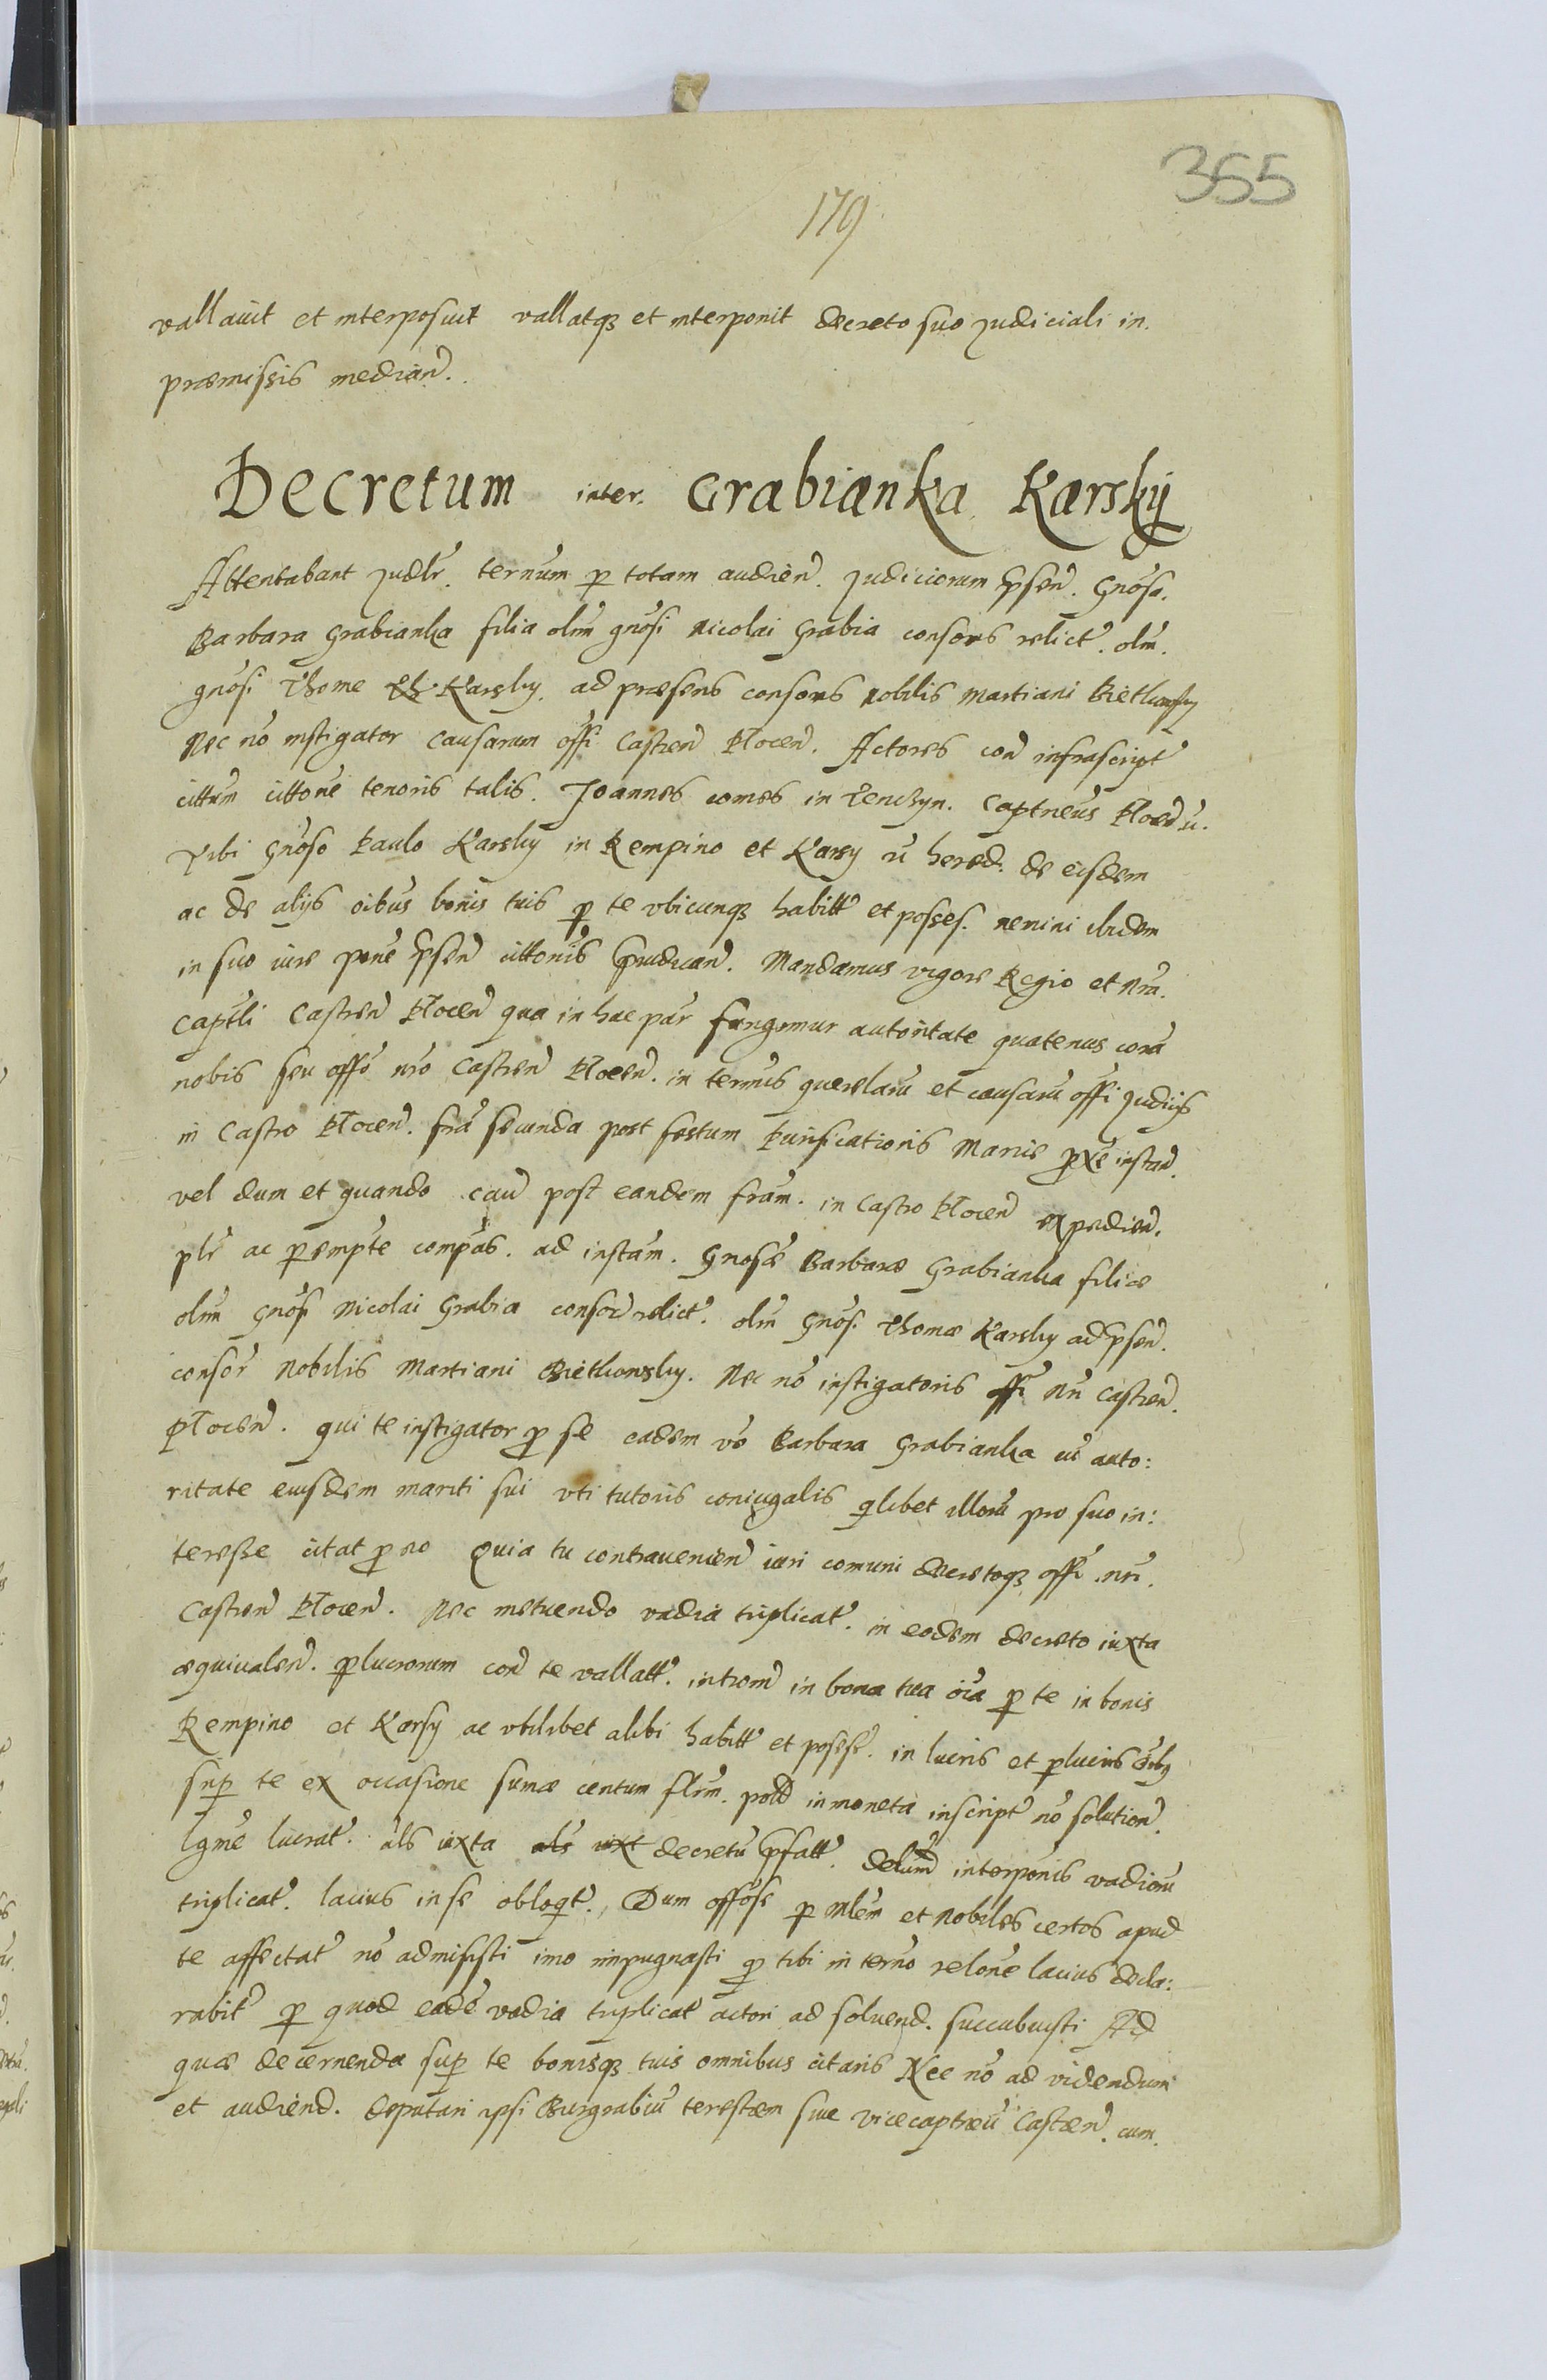 355
179
vallavit et interposuit vallatqȝ et interponit decreto suo judiciali in.
præmissis median̄.
Decretum inter. Grabianka Karskÿ
Attentabant judlr̄. ternum p totam audien̄. judiciorum p̄sen̄. Gnosa.
Barbara Grabianka filia olim gnosi Nicolai Grabia consors relict. olim.
gnosi Thome Karsky. ad præsens consors nobilis Martiani Bietkowsky
Nec nō instigator causarum offi Castren̄ Plocen̄. Actores con̄ infrascript
cittum cittone tenoris talis. Joannes comes in Tenczyn. Captneus
Tibi Gnoso Paulo Karsky in Rempino et Karsy ū hered. de eisdem
ac de alijs oibus bonis tuis p te vbicunqȝ habitt et posses. nemini ibidem
in suo iure pone p̄sen̄ cittonis p̄iudican̄. Mandamus vigore Regio et nra.
Captli Castren̄ Plocen̄ qua in hac par fungimur autoritate quatenus cora
nobis seu offo nro Castren̄ Plocen̄. in termis querelaru et causaru offi judiijs
in Castro Plocen̄. fra secunda post festum Purificationis Marie pxe instan̄.
vel dum et quando cau post eandem fram. in Castro Plocen̄ expedien̄.
plr ac perempte compas. ad instam. Gnosæ Barbaræ Grabianka filiæ
olim Gnosi Nicolai Grabia consor relict. olim Gnosi. Thomæ Karsky ad p̄sen̄.
consor Nobilis Martiani Bietkowsky. Nec nō instigatoris offi nri Castren̄.
Plocen̄. qui te instigator p se eadem vo Barbara Grabianka cu auto:
ritate eiusdem mariti sui vti tutoris coniugalis qlibet illoru pro suo in:
teresse citat p eo Quia tu contravenien̄ iuri comuni decretoqȝ offi nri.
Castren̄ Plocen̄. Nec metuendo vadia triplicat. in eodem decreto iuxta
æquivalen̄. plucrorum con̄ te vallatt. introm̄ in bona tua oia p te in bonis
Rempino et Karsy ac vbilibet alibi habitt et posess. in lucris et plucris
sup te ex occasione sumæ centum flrm. pold in moneta inscript nō solution̄.
lgme lucrat. als iuxta als iuxt decretu p̄fatt. interponis vadioru
triplicat. lacius in se obloqt. Dum offose p Mlem et Nobiles certos apud
te affectat nō admisisti imo impugnasti p tibi in terno relone lacius decla:
rabit p quod eade vadia triplicat actori ad soluend. succubuisti Ad
quæ decernenda sup te bonisqȝ tuis omnibus citaris Nec nō ad videndum
et audiend. deputari ipsi Burgrabiu terestrem siue vicecaptneu Castren̄. cum.